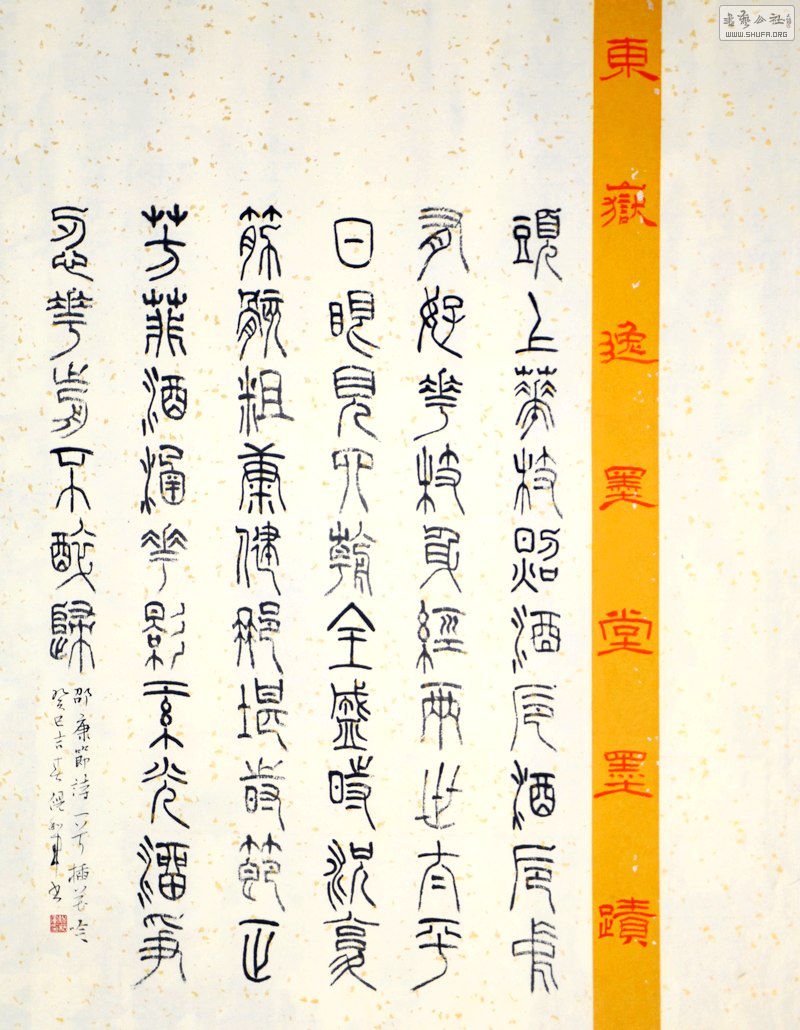 書藝公社
WWW.SHUFA.ORG
東嶽逸墨堂墨蹟
頭上華枝照酒卮酒卮中
有好華枝身經兩世太平
日眼見四朝全盛時況復
筋骸粗康健那堪時節正
芳菲酒涵華影紅光溜爭
忍華前不醉歸
邵康節詩一首插花吟
癸巳吉春